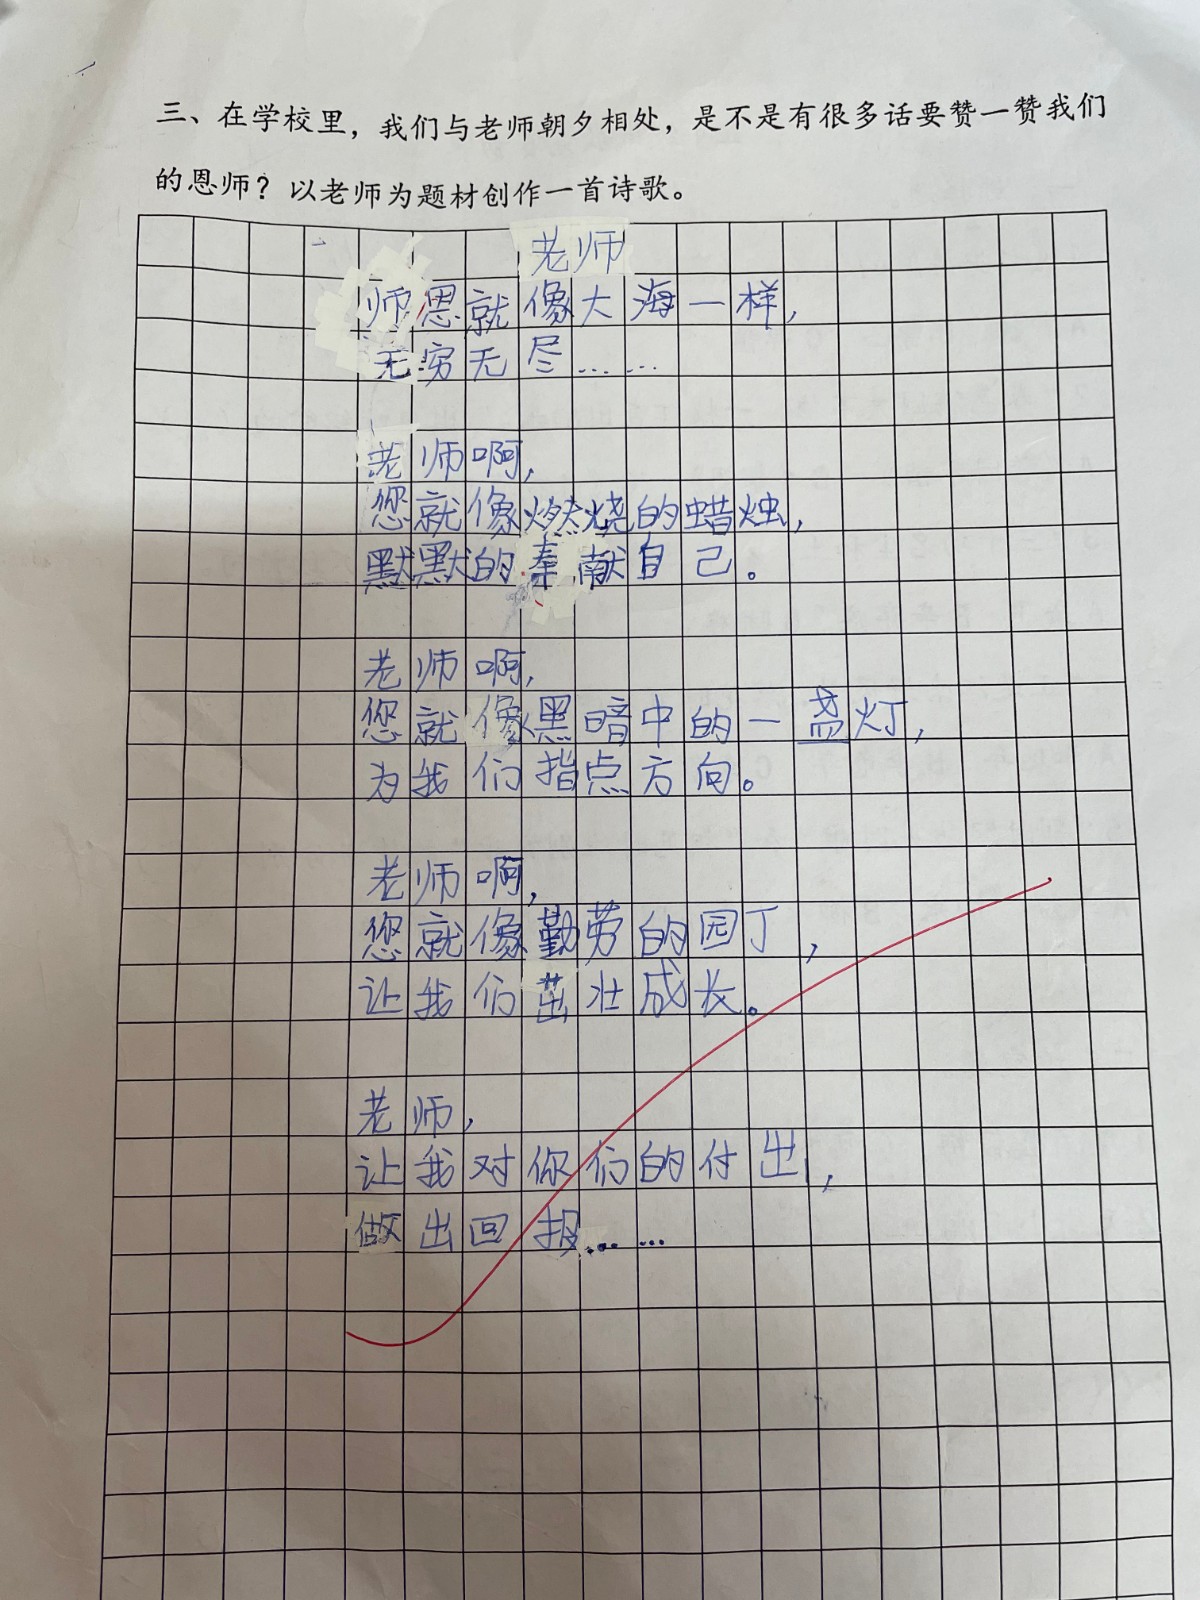 三、在学校里，我们与老师朝夕相处，是不是有很多话要赞一赞我们
的恩师？以老师为题材创作一首诗歌。
老师
师恩就像大海一样，
无穷无尽……
老师啊，
您就像燃烧的蜡烛，
默默的奉献自己。
老师啊，
您就像黑暗中的一盏灯，
为我们指点方向。
老师啊，
您就像勤劳的园丁，
让我们茁壮成长。
老师，
让我对你们的付出，
做出回报……